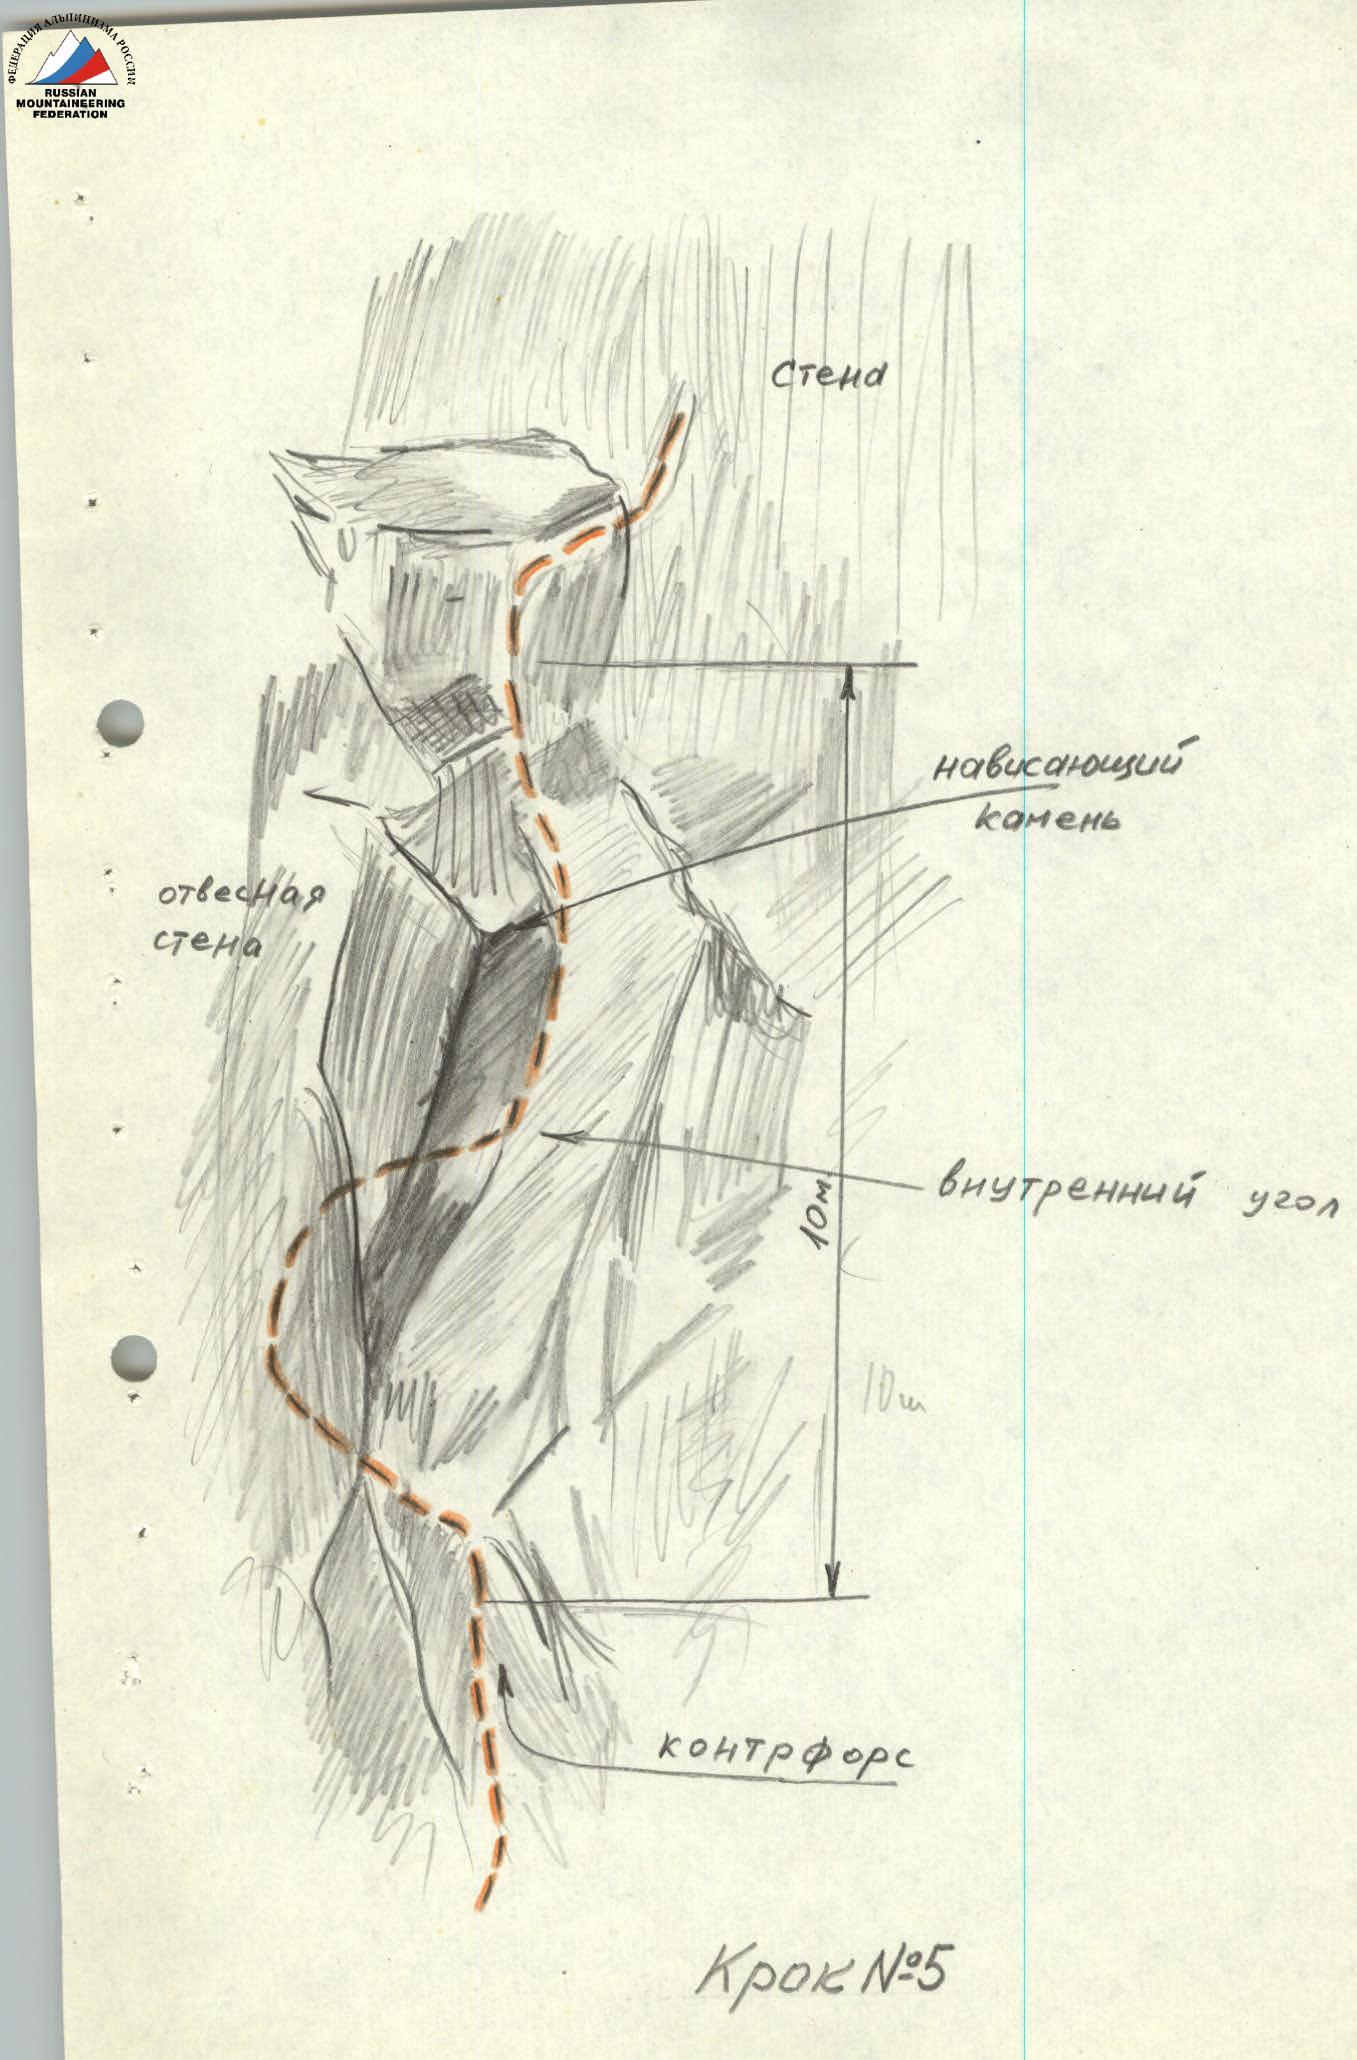 ФЕДЕРАЦИЯ АЛЬПИНИЗМА РОССИИ
RUSSIAN
MOUNTAINEERING
FEDERATION
Стена
нависающий
камень
отвесная
стена
внутренний угол
10м
10м
контрфорс
Крок №5